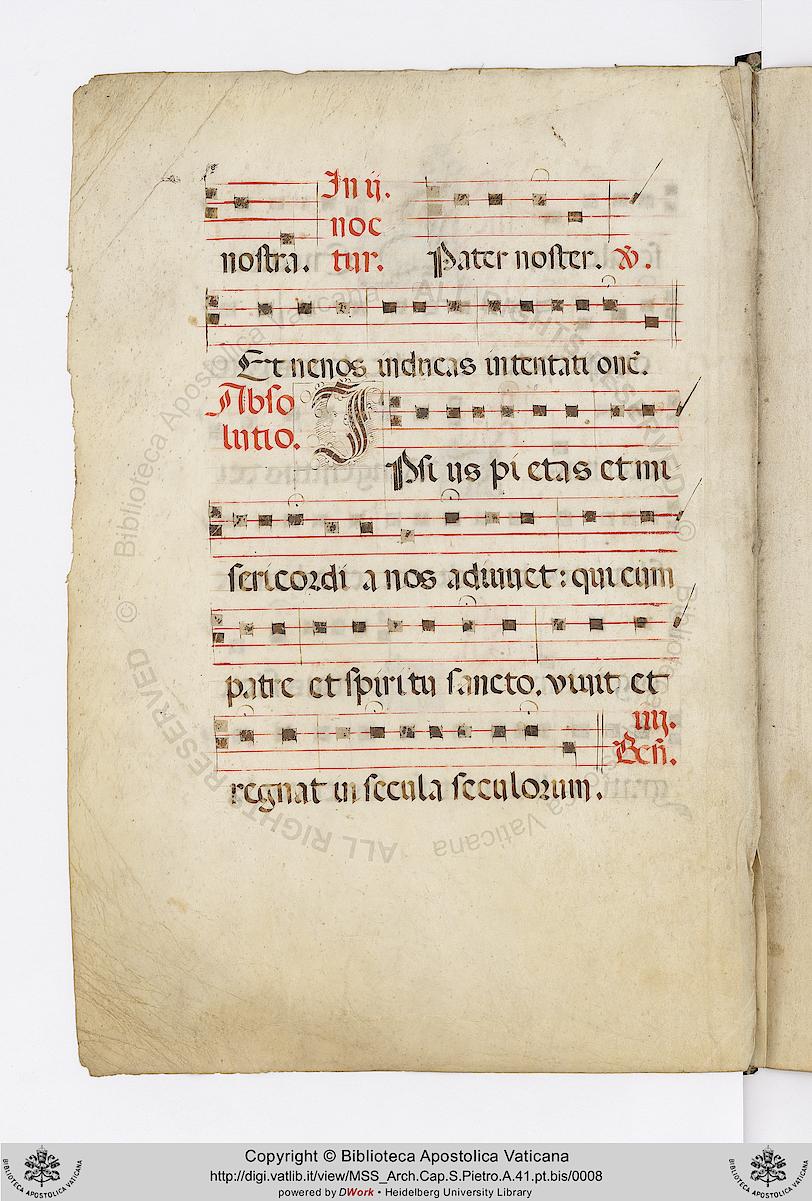 In ij.
noc
nostra. tur. Pater noster. ℣.
Et nenos inducas intentati onē.
Abso
lutio.
IPsi us pi etas et mi
sericordi a nos adiuuet: qui cum
patre et spiritu sancto. viuit et
iiij.
Ben̄.
regnat in secula seculorum.
© Biblioteca Apostolica Vaticana ALL RIGHTS RESERVED
Copyright © Biblioteca Apostolica Vaticana
http://digi.vatlib.it/view/MSS_Arch.Cap.S.Pietro.A.41.pt.bis/0008
powered by DWork • Heidelberg University Library
BIBLIOTECA APOSTOLICA VATICANA
BIBLIOTECA APOSTOLICA VATICANA